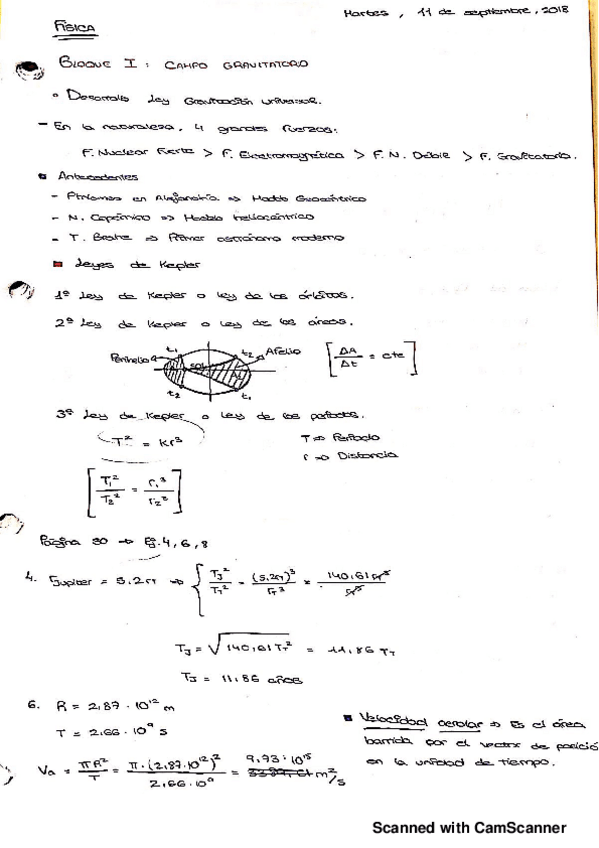 Martes, 11 de septiembre, 2018
FÍSICA
BLOQUE I: CAMPO GRAVITATORIO
• Desarrollo Ley Gravitación universal.
- En la naturaleza, 4 grandes fuerzas:
F. Nuclear Fuerte > F. Electromagnética > F. N. Débil > F. Gravitatoria.
Antecedentes
- Ptolomeo en Alejandría => Modelo Geocéntrico
- N. Copérnico => Modelo heliocéntrico
- T. Brahe => Primer astrónomo moderno
Leyes de Kepler
1ª Ley de Kepler o ley de las órbitas.
2ª Ley de Kepler o ley de las áreas.
t₁ t₂ Afelio
Perihelio SOL
t₂ t₁
[ΔA/Δt = cte]
3ª Ley de Kepler o Ley de los períodos.
T² = Kr³
T => Período
r => Distancia
[T₁²/T₂² = r₁³/r₂³]
Página 30 → Ej. 4, 6, 8
4. Júpiter = 5.2rT => { TJ²/TT² = (5,2rT)³/rT³ = 140,61rT³/rT³
TJ = √140,61TT² = 11,86 TT
TJ = 11,86 años
6. R = 2,87 · 10¹² m
T = 2,66 · 10⁹ s
Va = πR²/T = π·(2,87·10¹²)²/2,66·10⁹ = 9,73·10¹⁵ m²/s
Velocidad aerolar => Es el área
barrida por el vector de posición
en la unidad de tiempo.
Scanned with CamScanner